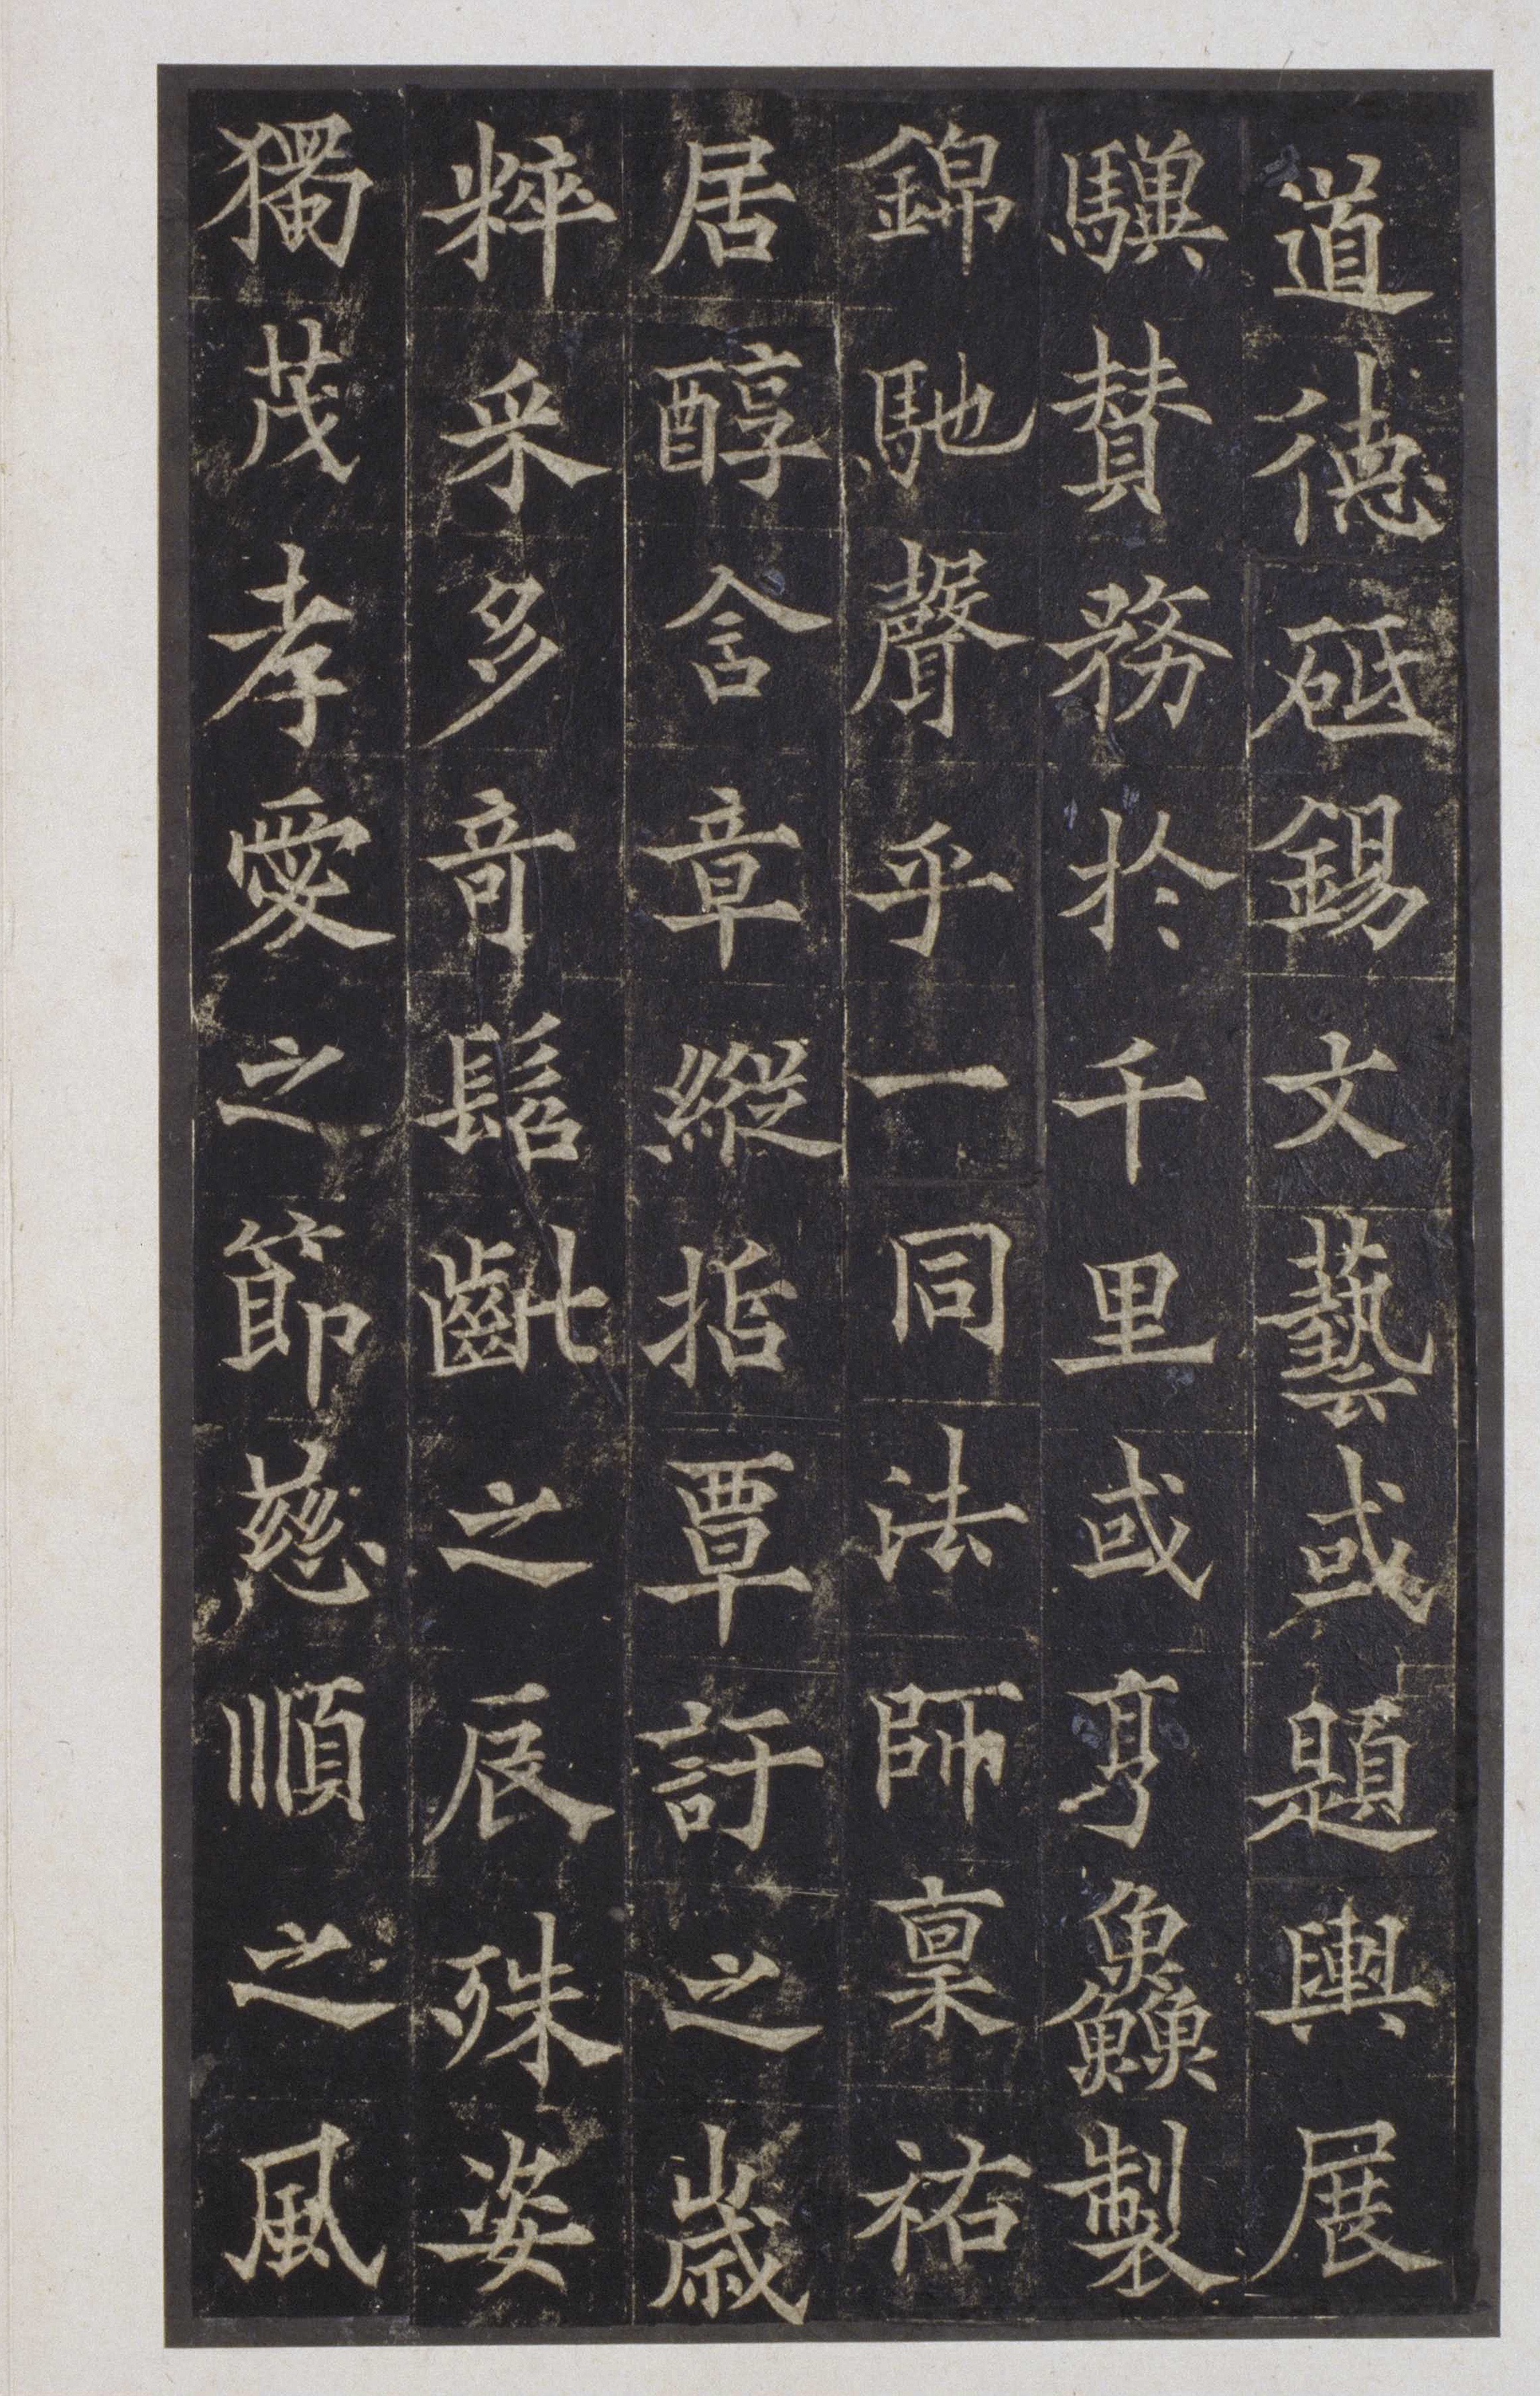 道德砥錫文藝或題輿展
驥賛務於千里或亨鱻製
錦馳聲乎一同法師稟祐
居醇含章縱指覃訏之歲
粹采多奇髫齔之辰殊姿
獨茂孝愛之節慈順之風